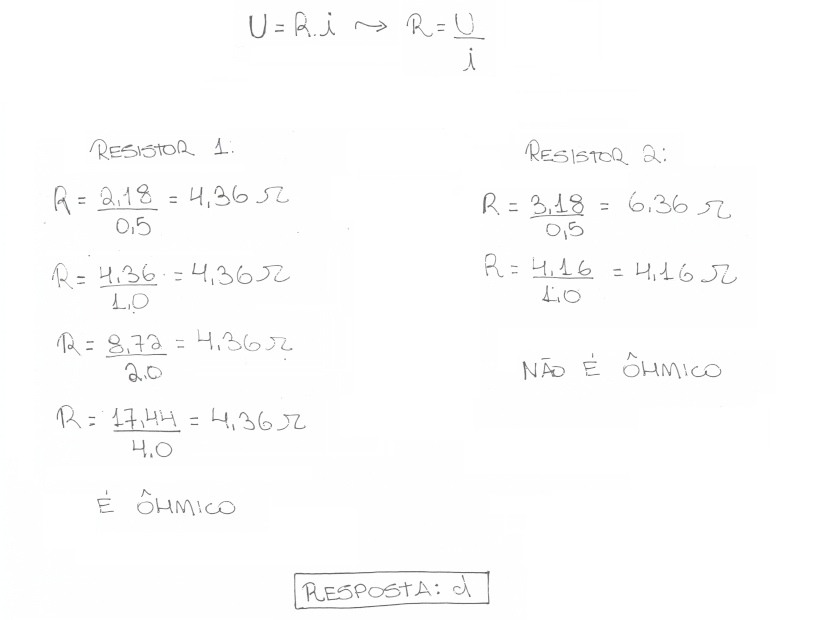 U = R.i ⇝ R = U/i
RESISTOR 1:
R = 2,18/0,5 = 4,36 Ω
R = 4,36/1,0 = 4,36 Ω
R = 8,72/2,0 = 4,36 Ω
R = 17,44/4,0 = 4,36 Ω
É ÔHMICO
RESISTOR 2:
R = 3,18/0,5 = 6,36 Ω
R = 4,16/1,0 = 4,16 Ω
NÃO É ÔHMICO
RESPOSTA: d